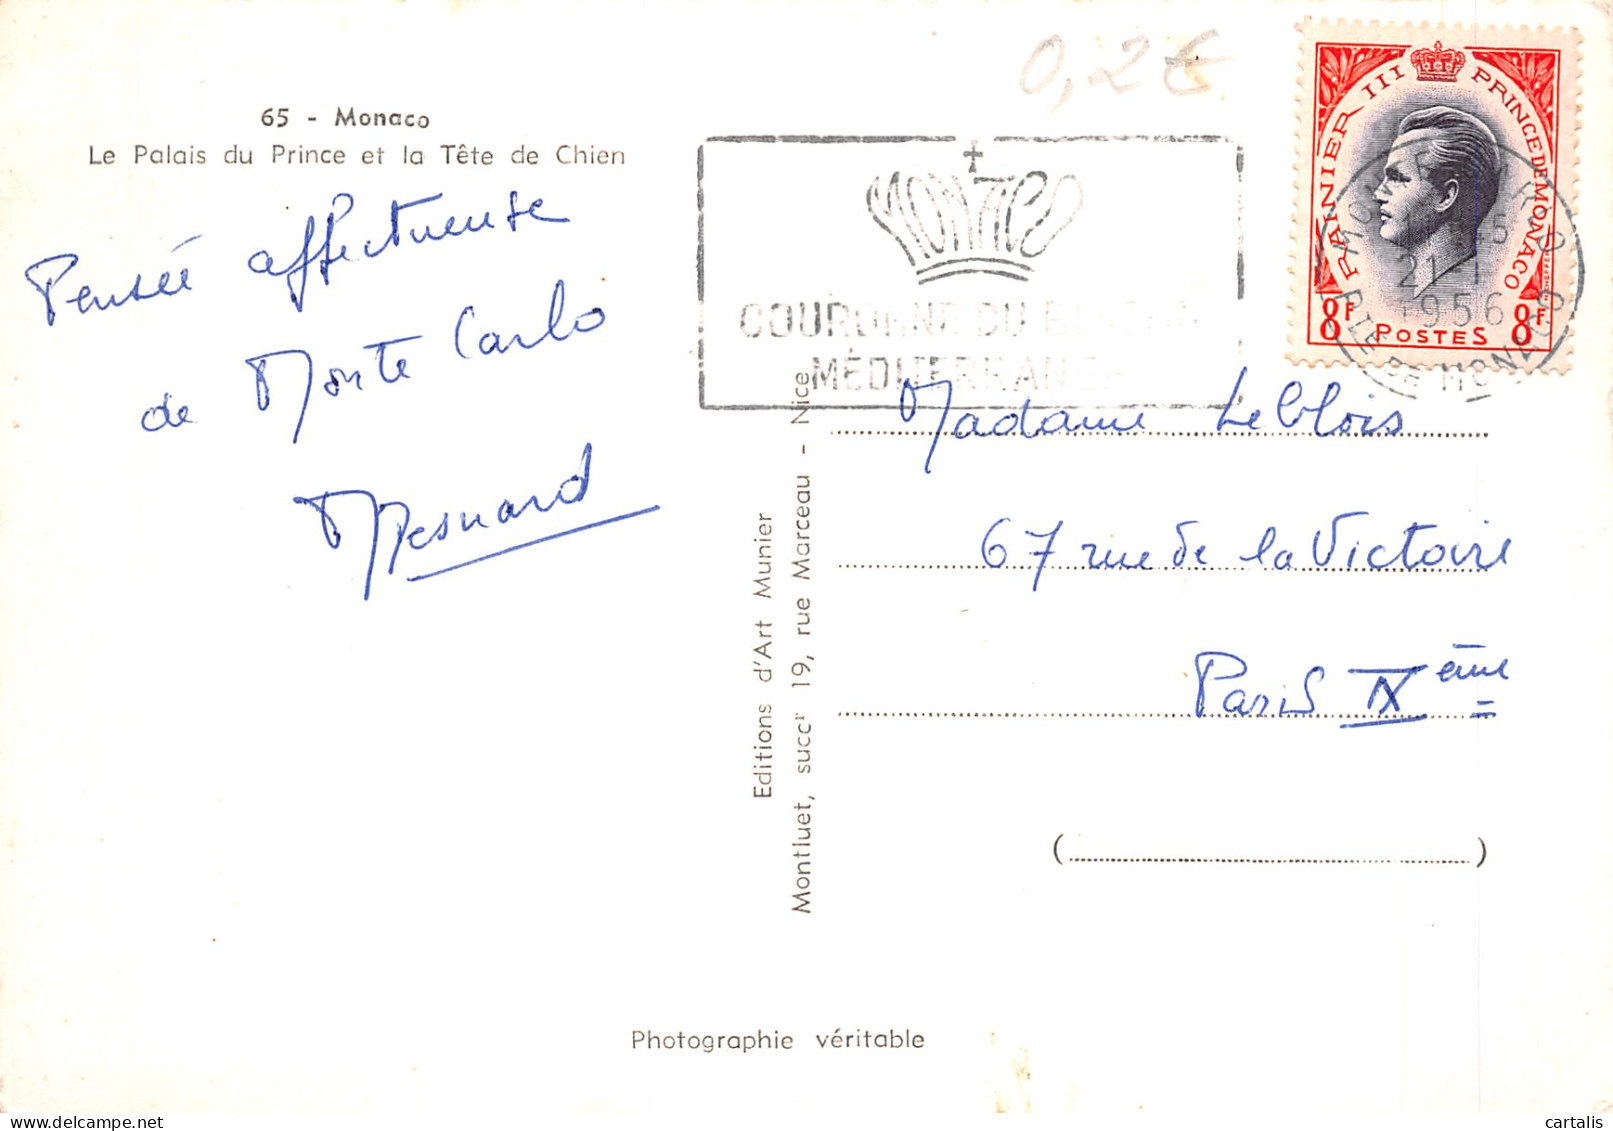 0,2€
65 - Monaco
Le Palais du Prince et la Tête de Chien
Pensée affectueuse
de Monte Carlo
Mesnard
MONACO
MÉDITERRANÉE
RAINIER III PRINCE DE MONACO
8F POSTES 8F
1956
Madame Leblois
67 rue de la Victoire
Paris IX ème
Editions d'Art Munier
Montluet, succr 19, rue Marceau - Nice
( )
Photographie véritable
delcampe.net
cartalis